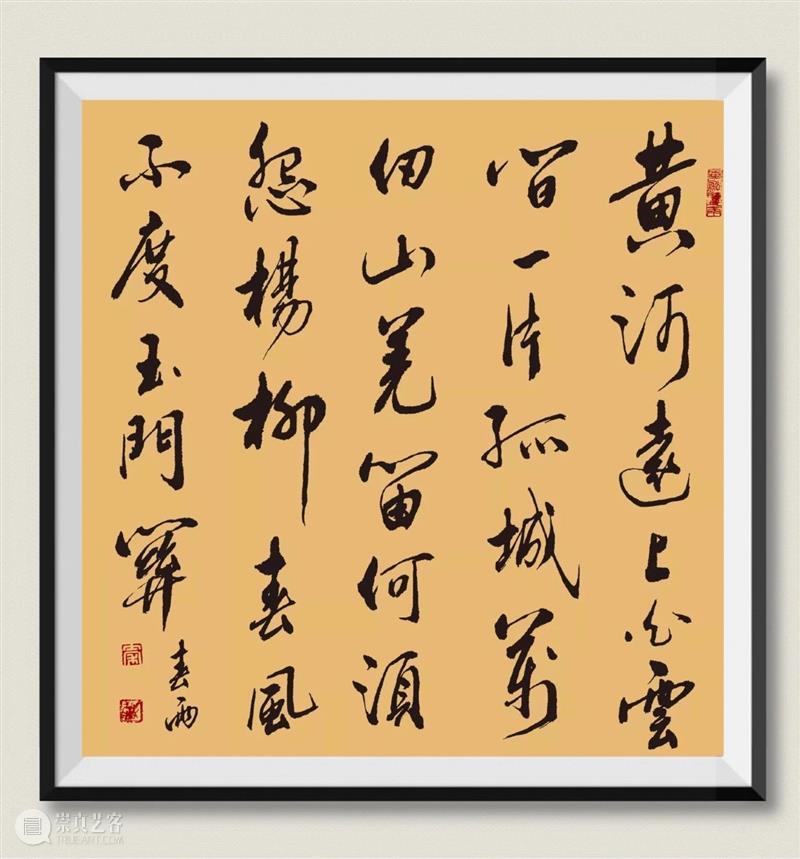 黄河遠上白雲
間一片孤城萬
仞山羌笛何須
怨楊柳春風
不度玉門關
春雨
崇真艺客
TRUEART.COM